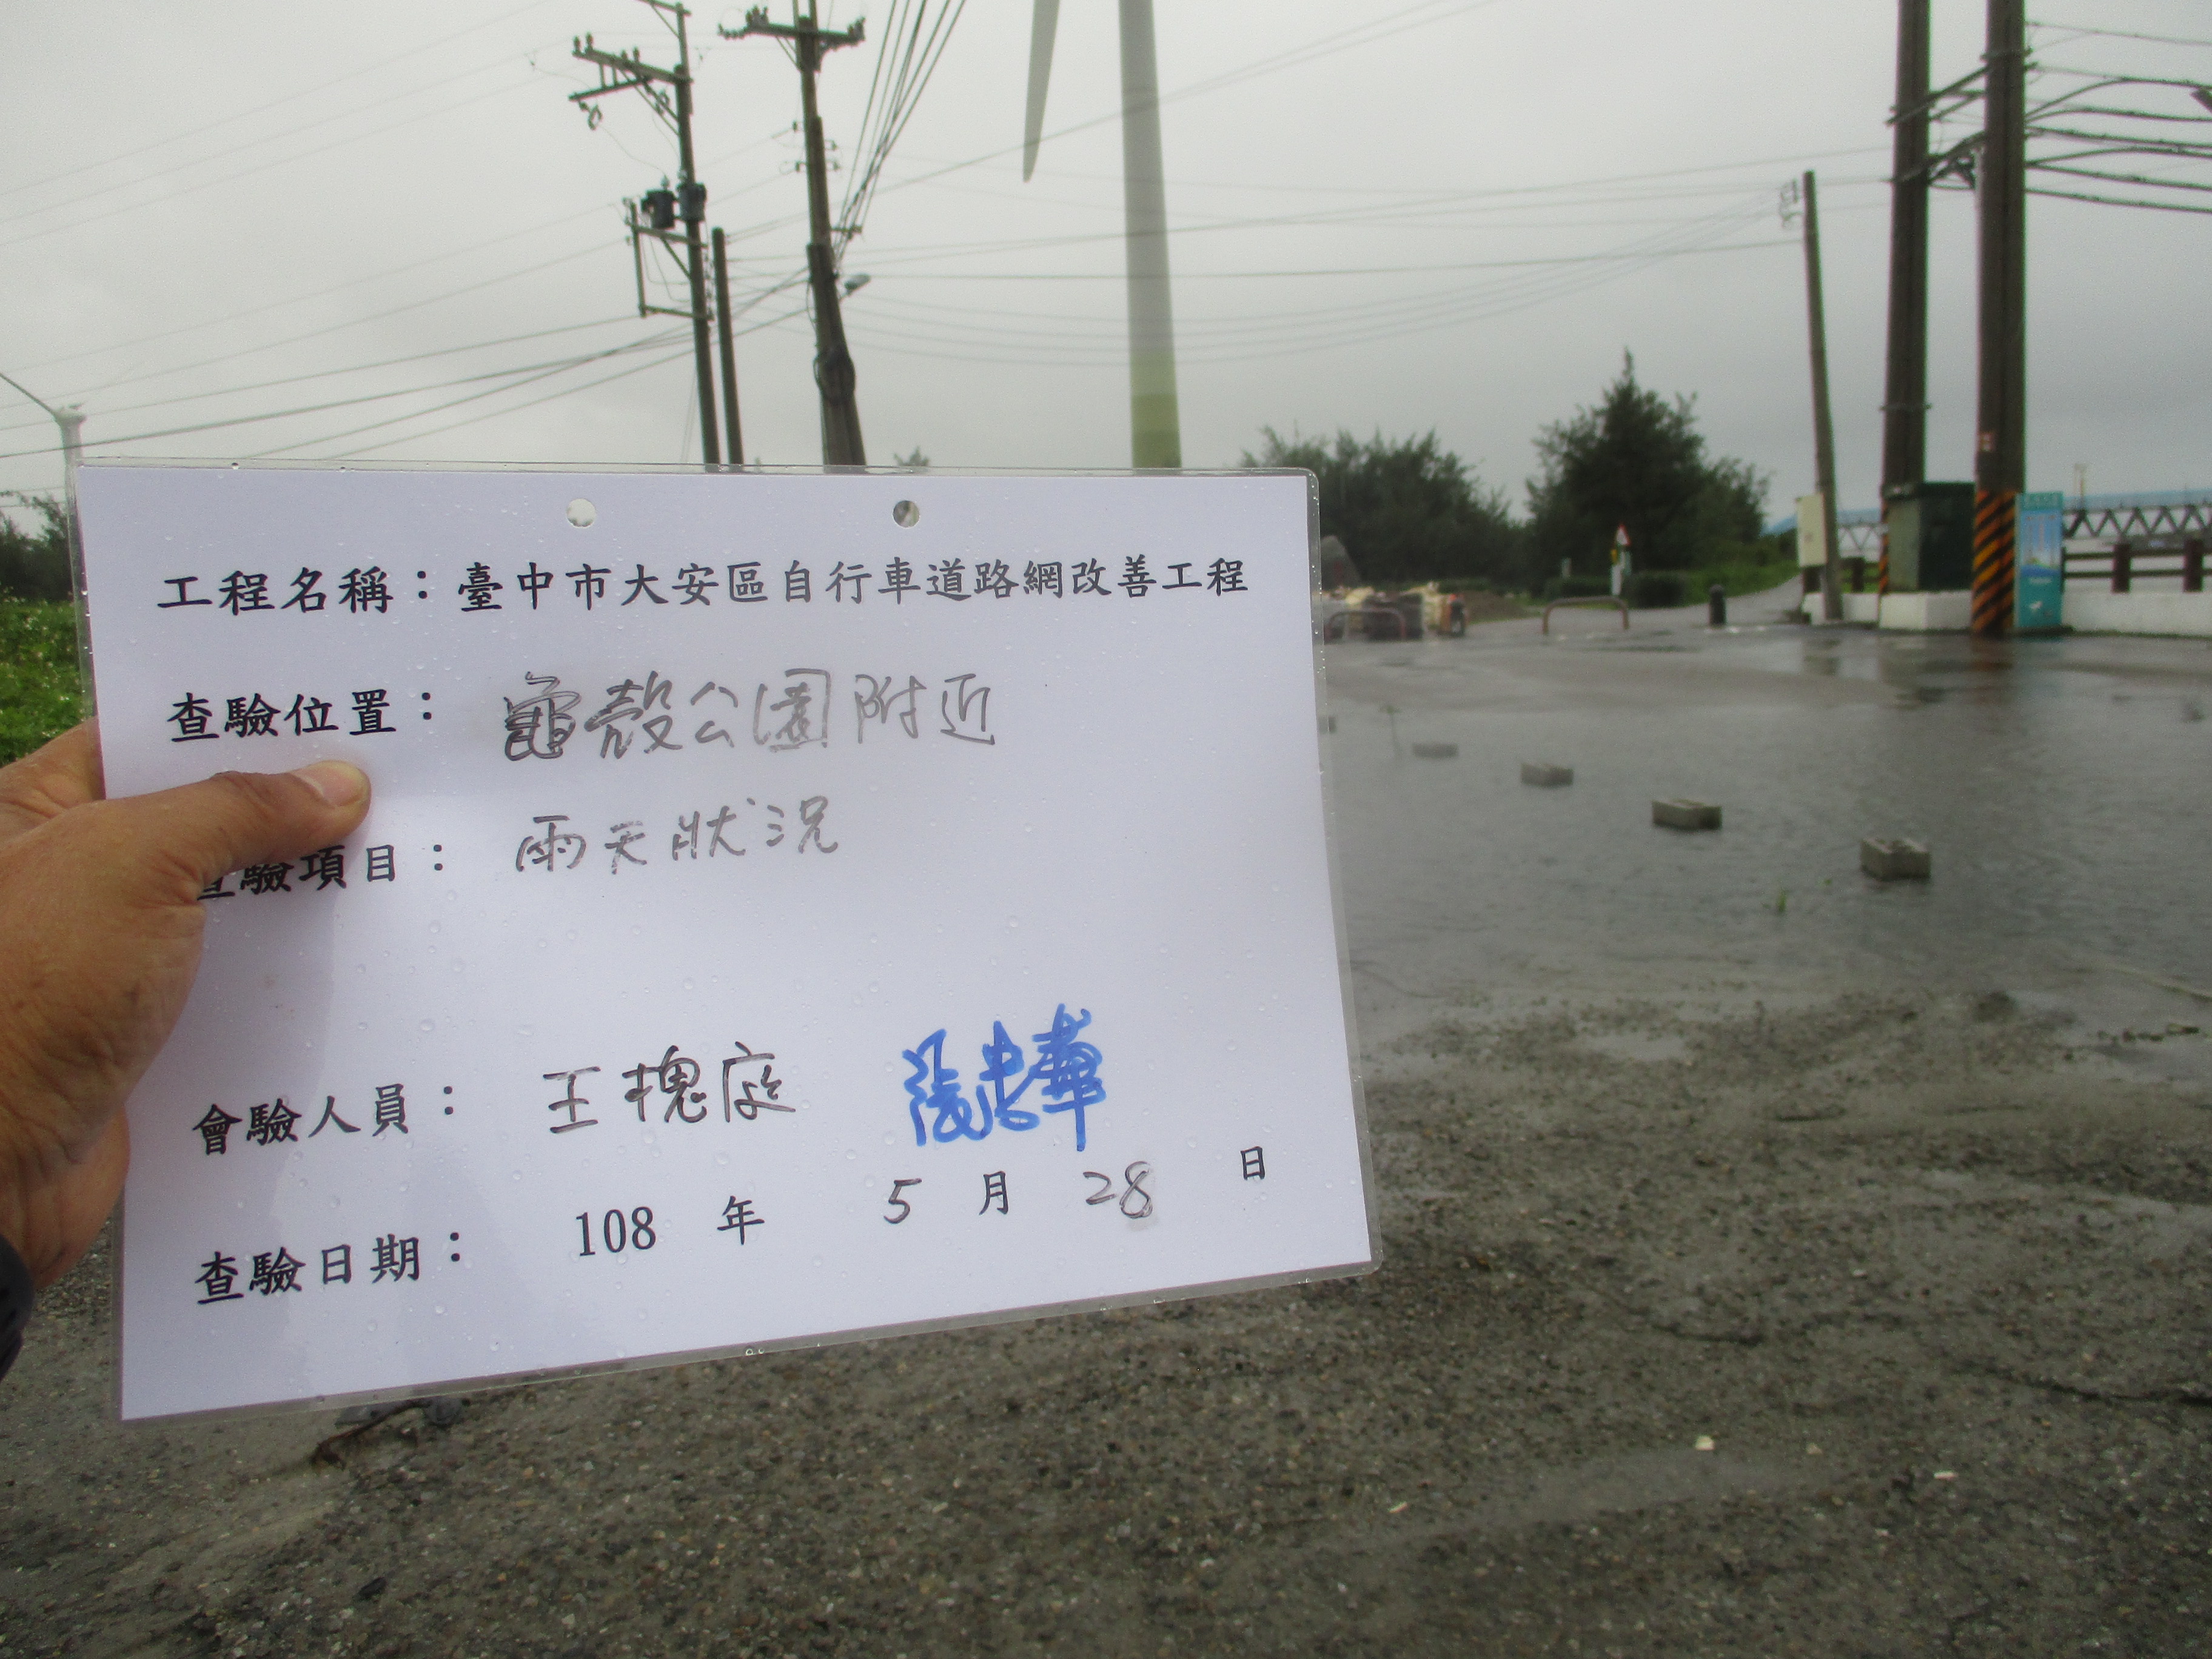 工程名稱：臺中市大安區自行車道路網改善工程
查驗位置：龜殼公園附近
查驗項目：雨天狀況
會驗人員：王槐庭 張忠華
查驗日期：108 年 5 月 28 日